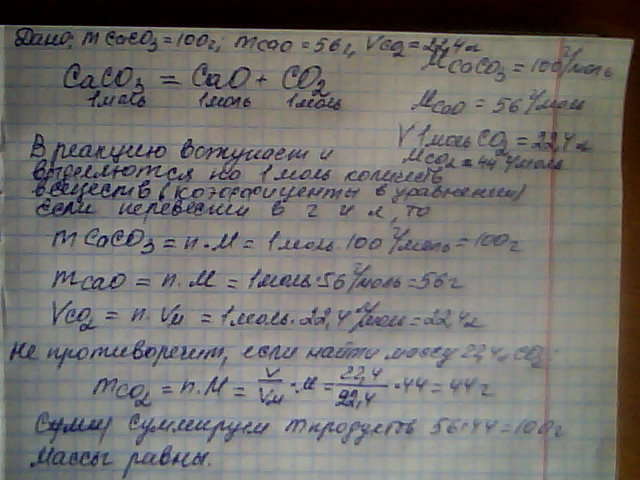 Дано: mCaCO₃=100г; mCaO=56г, VCO₂=22,4л
MCaCO₃=100 г/моль
CaCO₃ = CaO + CO₂
1моль 1моль 1моль
MCaO = 56 г/моль
V 1моль CO₂=22,4л
MCO₂=44 г/моль
В реакцию вступают и
выделяются по 1 моль количеств
веществ (коэффициенты в уравнении)
если перевести в г и л, то
mCaCO₃ = n·M = 1моль·100 г/моль=100г
mCaO = n·M = 1моль·56 г/моль=56г
VCO₂ = n·Vм = 1моль·22,4 л/моль=22,4л
Не противоречит, если найти массу 22,4л CO₂:
mCO₂ = n·M = V/Vм·M = 22,4/22,4·44 = 44г
Сумми суммируем m продуктов 56+44=100г
Массы равны.